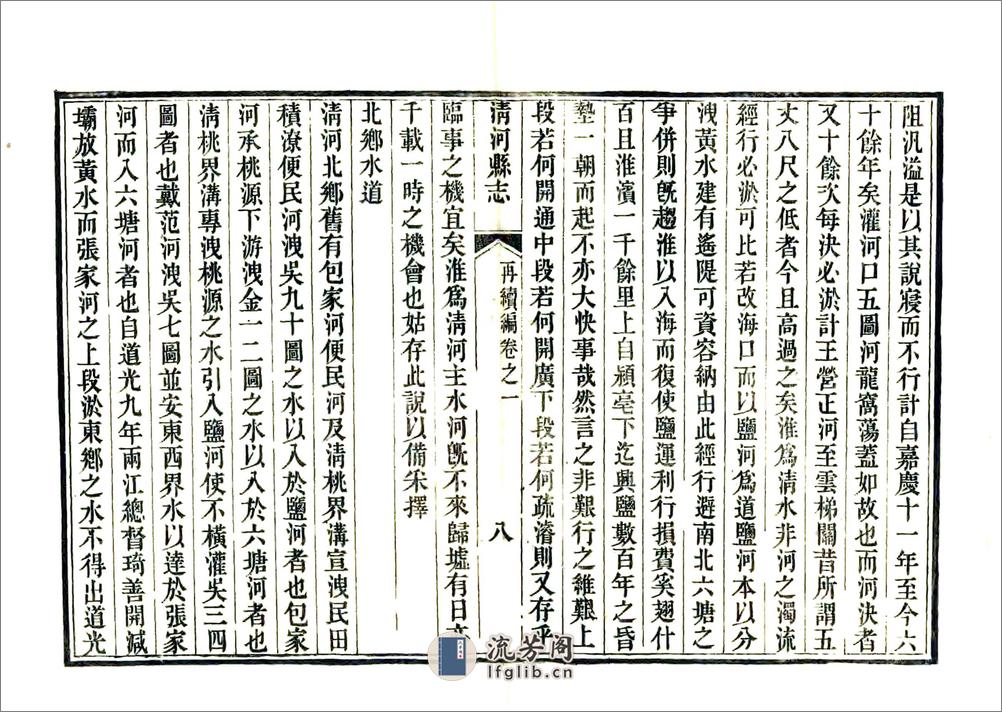 阻汎溢是以其說寢而不行計自嘉慶十一年至今六
十餘年矣灌河口五圖河龍窩蕩蓋如故也而河決者
又十餘次每決必淤計王營正河至雲梯關昔所謂五
丈八尺之低者今且高過之矣淮爲清水非河之濁流
經行必淤可比若改海口而以鹽河爲道鹽河本以分
洩黃水建有遙隄可資容納由此經行避南北六塘之
爭併則旣趨淮以入海而復使鹽運利行損費奚翅什
百且淮濱一千餘里上自潁亳下迄興鹽數百年之昏
墊一朝而起不亦大快事哉然言之非艱行之維艱上
段若何開通中段若何開廣下段若何疏濬則又存乎
清河縣志
再續編卷之一
八
臨事之機宜矣淮爲淸河主水河旣不來歸墟有日亦
千載一時之機會也姑存此說以備采擇
北鄉水道
淸河北鄉舊有包家河便民河及淸桃界溝宣洩民田
積潦便民河洩吳九十圖之水以入於鹽河者也包家
河承桃源下游洩金一二圖之水以入於六塘河者也
淸桃界溝專洩桃源之水引入鹽河使不橫灌吳三四
圖者也戴范河洩吳七圖並安東西界水以達於張家
河而入六塘河者也自道光九年兩江總督琦善開減
壩放黃水而張家河之上段淤東鄉之水不得出道光
流芳阁
lfglib.cn